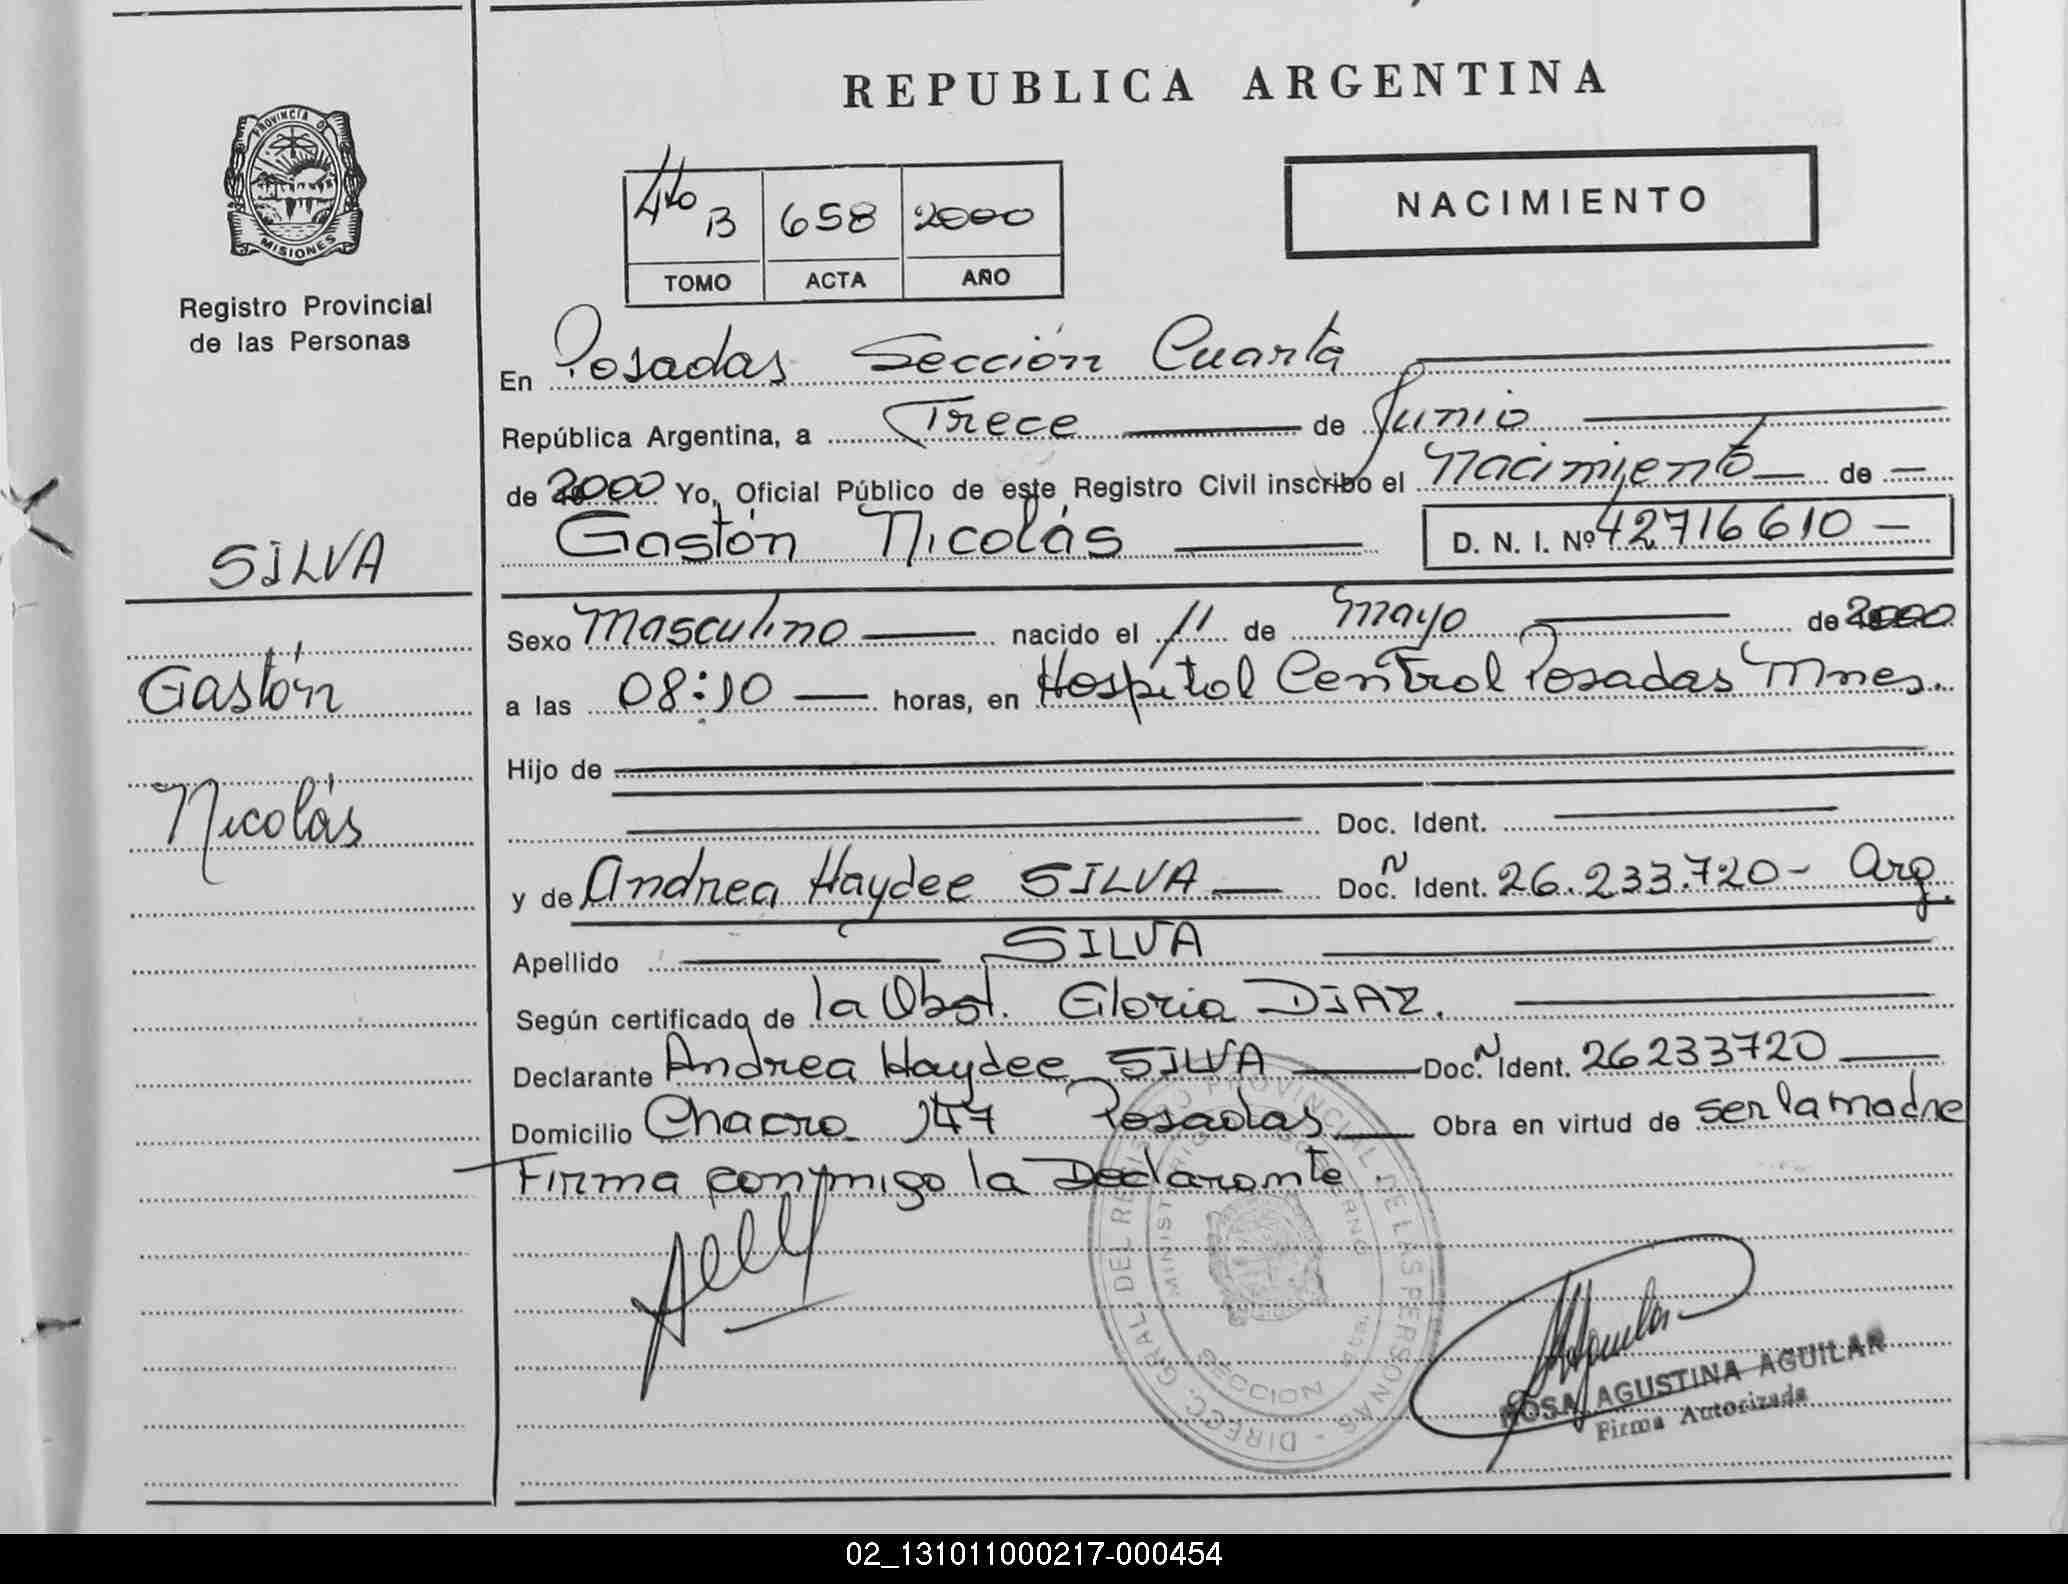 REPUBLICA ARGENTINA
PROVINCIA DE
MISIONES
Registro Provincial
de las Personas
4to B 658 2000
TOMO ACTA AÑO
NACIMIENTO
En Posadas Sección Cuarta
República Argentina, a Trece de Junio
de 2000 Yo, Oficial Público de este Registro Civil inscribo el Nacimiento de
Gastón Nicolás D. N. I. Nº 42716610
SILVA
Gastón
Nicolás
Sexo Masculino nacido el 11 de Mayo de 2000
a las 08:10 horas, en Hospital Central Posadas Mnes.
Hijo de
Doc. Ident.
y de Andrea Haydee SILVA Doc. N Ident. 26.233.720- Arg.
Apellido SILVA
Según certificado de la Obst. Gloria DIAZ.
Declarante Andrea Haydee SILVA Doc. N Ident. 26233720
Domicilio Chacra 147 Posadas Obra en virtud de ser la madre
Firma conmigo la Declarante.
DIRECC. GRAL. DEL REGISTRO PROVINCIAL DE LAS PERSONAS
SECCION 4ta.
ROSA AGUSTINA AGUILAR
Firma Autorizada
02_131011000217-000454